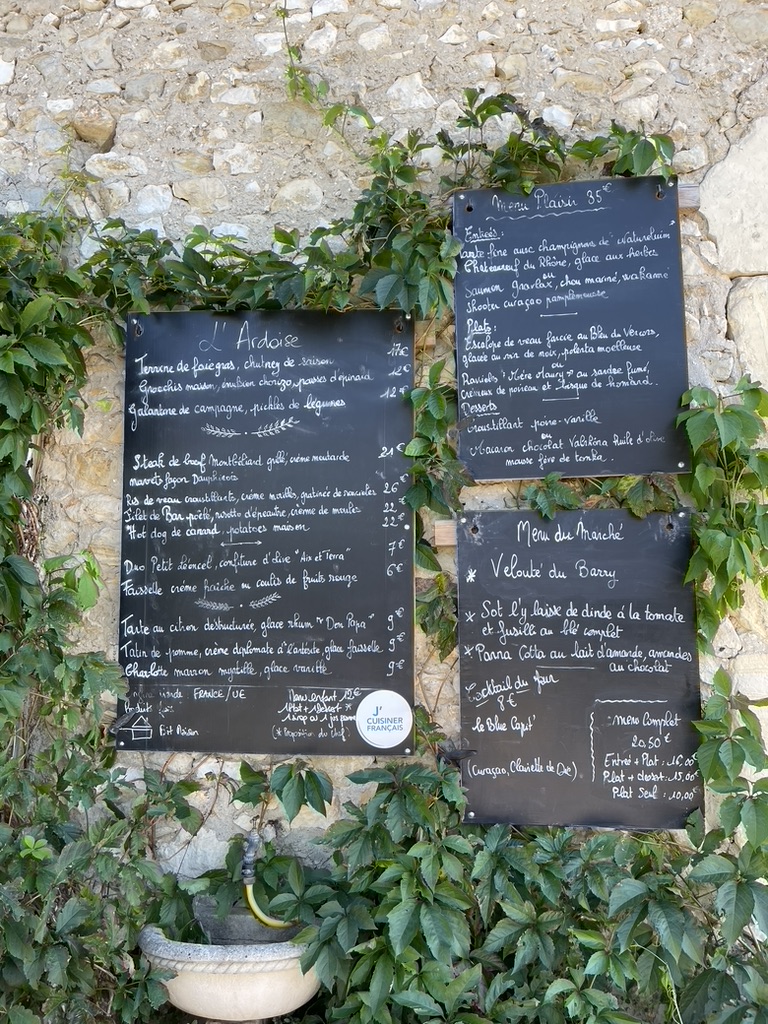 L'Ardoise
Terrine de foie gras, chutney de saison 17€
Gnocchis maison, émulsion chorizo, pousses d'épinard 12€
Galantine de campagne, pickles de légumes 12€
Steak de bœuf Montbéliard grillé, crème moutarde 21€
navets façon Dauphinois
Ris de veau croustillants, crème morilles, gratinée de ravioles 26€
Filet de Bar poêlé, risotto d'épeautre, crème de moules 22€
Hot dog de canard, potatoes maison 22€
Duo Petit Léoncel, confiture d'olive "Aix et Terra" 7€
Faisselle crème fraîche ou coulis de fruits rouge 6€
Tarte au citron destructurée, glace rhum "Don Papa" 9€
Tatin de pomme, crème diplomate à l'ardéchoise, glace faisselle 9€
Charlotte marron myrtille, glace vanille 9€
viande FRANCE/UE
Produits frais
Fait Maison
Menu enfant 12€
1 Plat + 1 Dessert *
1 sirop ou 1 jus pomme
(* Proposition du chef)
J'
CUISINE
FRANÇAIS
Menu Plaisir 35€
Entrées:
Tarte fine aux champignons de "Natureluim"
Châteauneuf du Rhône, glace aux herbes
ou
Saumon gravlax, chou mariné, wakamé
shooter curaçao pamplemousse
Plats:
Escalope de veau farcie au Bleu du Vercors,
glacée au vin de noix, polenta moelleuse
ou
Ravioles "Mère Maury" au sandre fumé,
Crémeux de poireau et bisque de homard.
Desserts
Croustillant poire-vanille
ou
Macaron chocolat Valrhona huile d'olive
mousse fève de tonka.
Menu du Marché
* Velouté du Barry
* Sot l'y laisse de dinde à la tomate
et fusilli au blé complet
* Panna Cotta au lait d'amande, amandes
au chocolat
Cocktail du jour
8€
le Blue Capit'
(Curaçao, Clairette de Die)
menu Complet
20,50€
Entrée + Plat : 16,00
Plat + dessert : 15,00
Plat Seul : 10,00